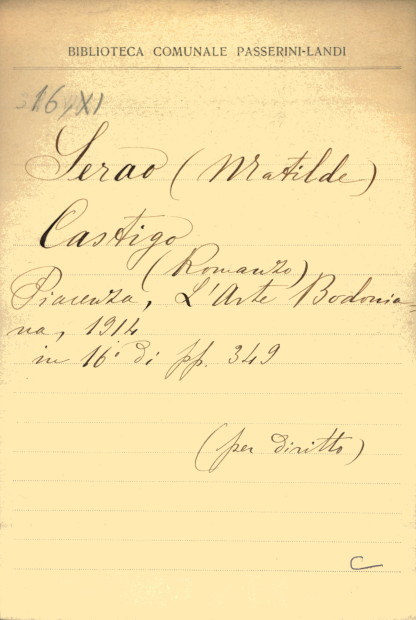 BIBLIOTECA COMUNALE PASSERINI-LANDI
16, XI
Serao (Matilde)
Castigo
(Romanzo)
Piacenza, L'Arte Bodonia=
na, 1914
in 16° di pp. 349
(per diritto)
C